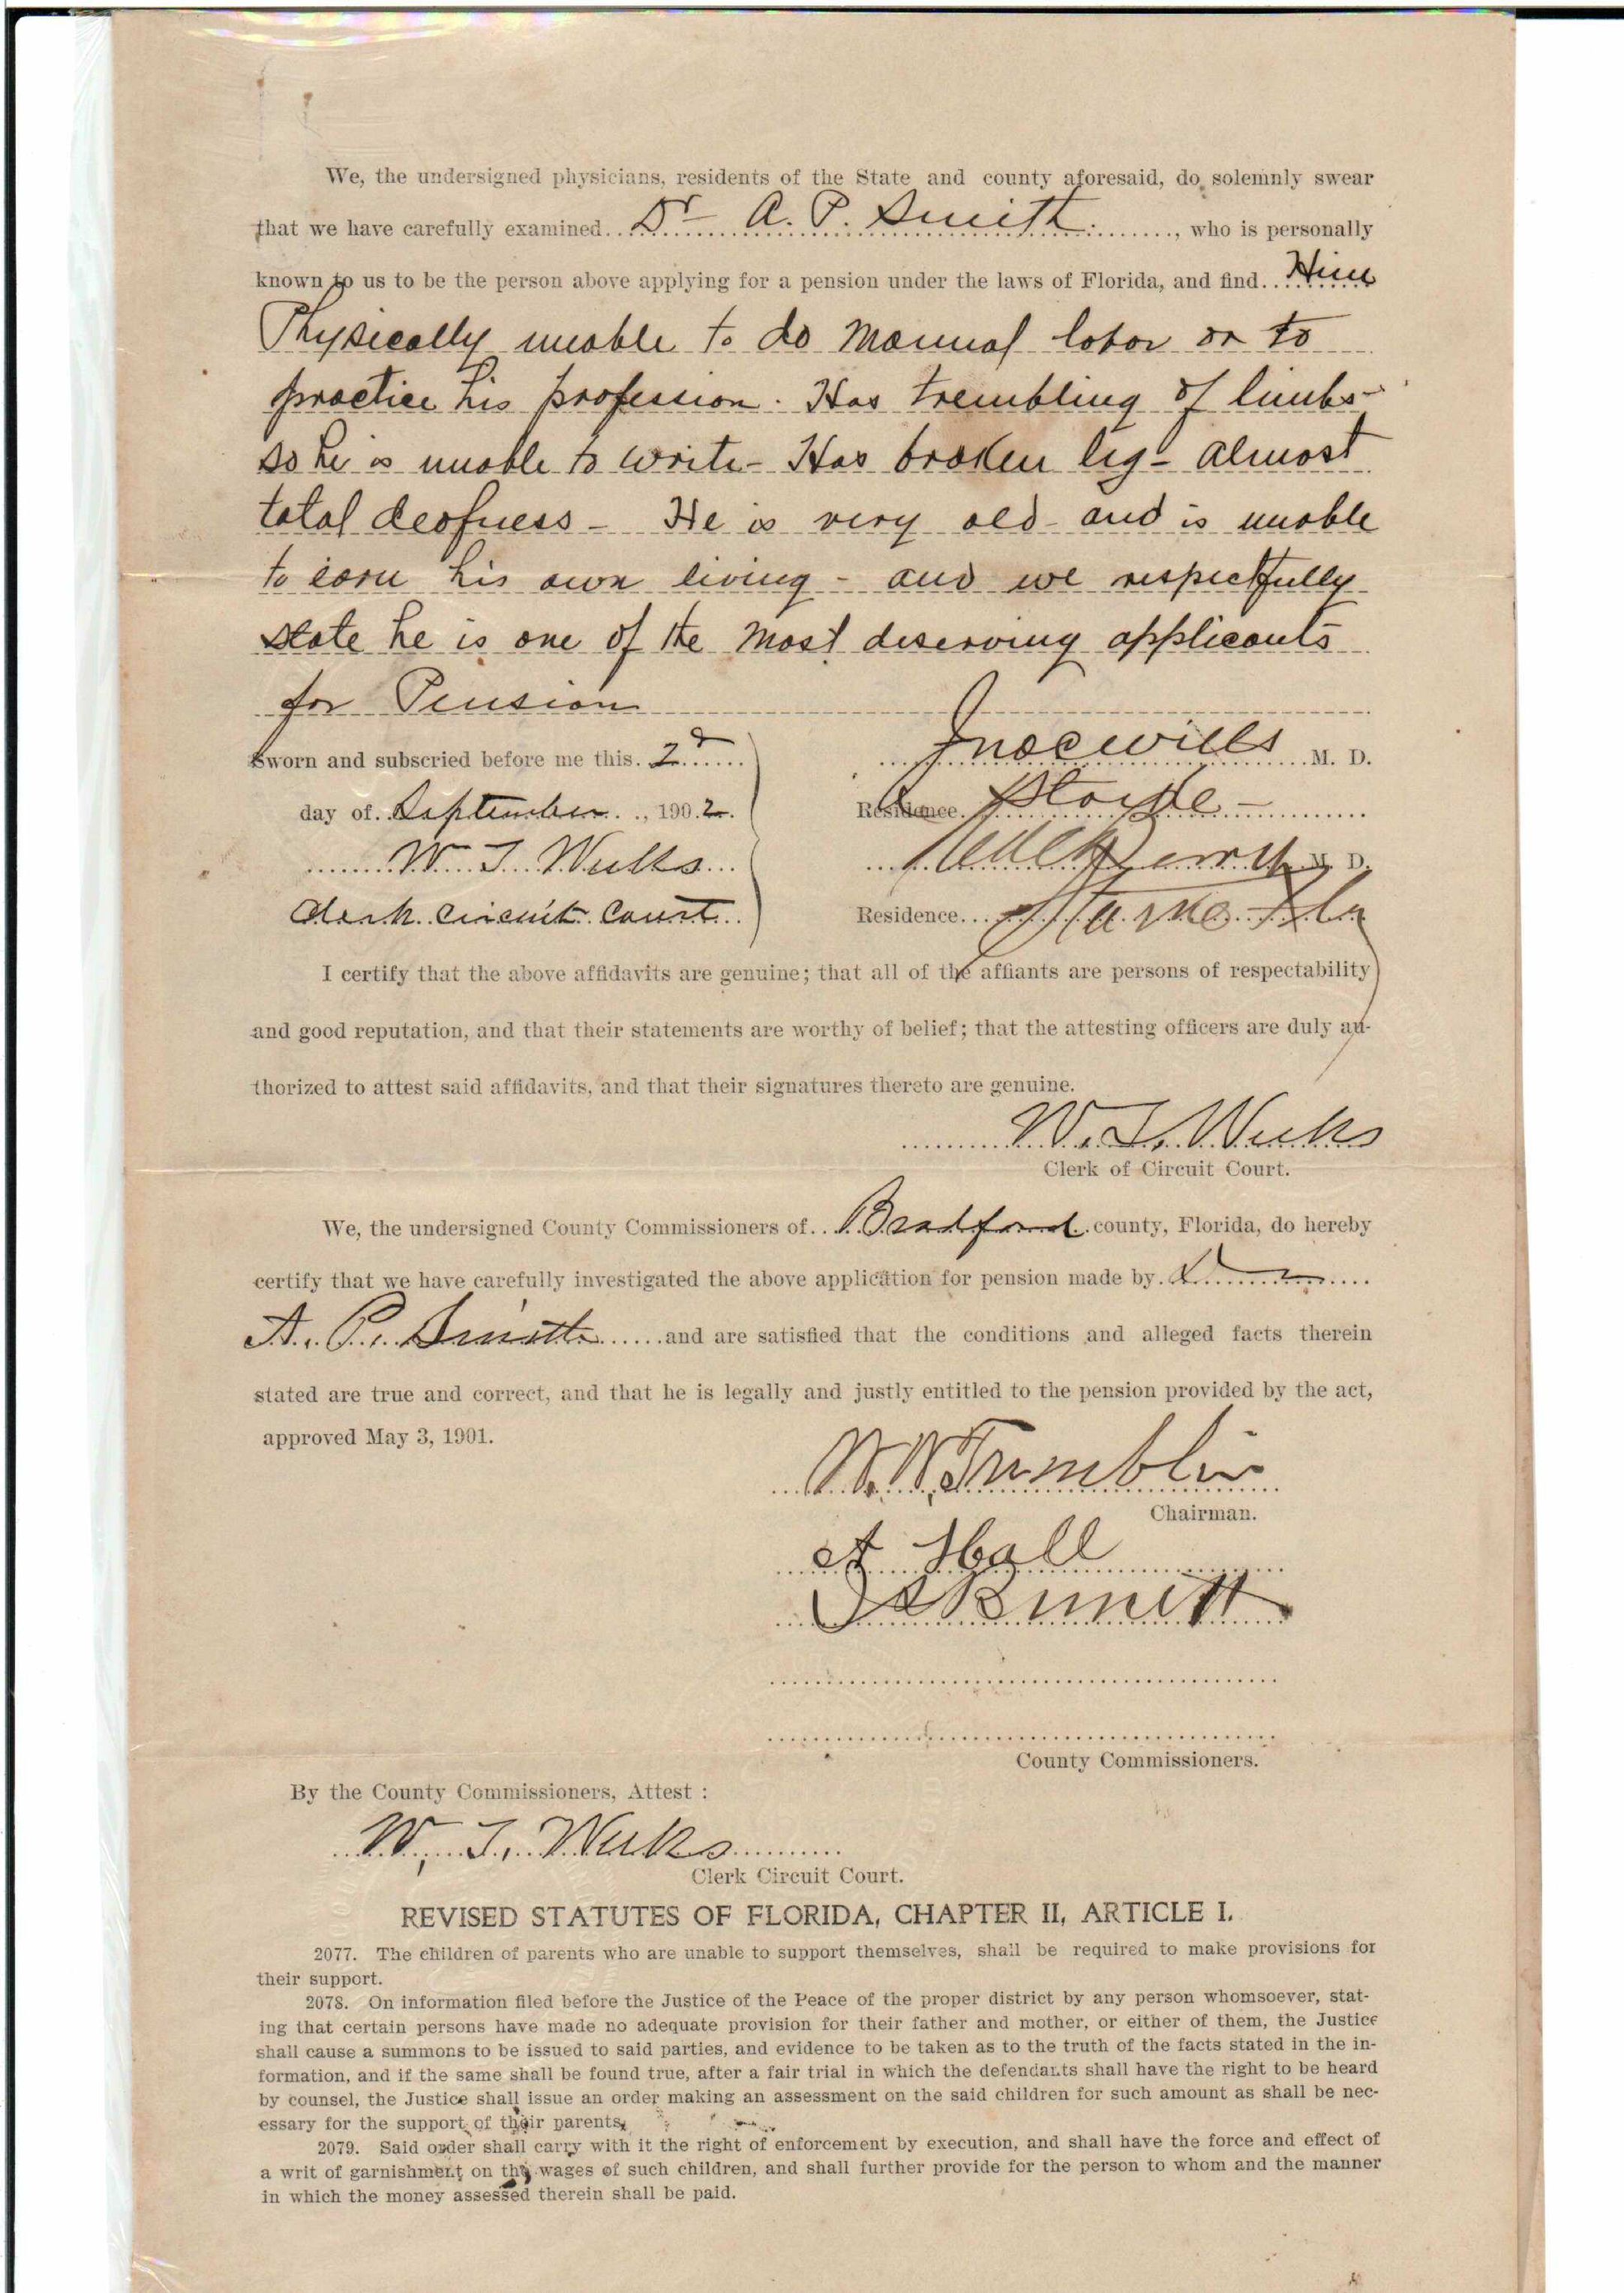 We, the undersigned physicians, residents of the State and county aforesaid, do solemnly swear
that we have carefully examined Dr A. P. Smith, who is personally
known to us to be the person above applying for a pension under the laws of Florida, and find Him
Physically unable to do manual labor or to
practice his profession. Has trembling of limbs-
so he is unable to write - Has broken leg - almost
total deafness - He is very old - and is unable
to earn his own living - and we respectfully
state he is one of the most deserving applicants
for Pension
Sworn and subscried before me this 2d
day of September, 1902.
W. T. Weeks
Clerk Circuit Court
Jno C Wills M. D.
Residence Starke -
M. D.
Residence Starke Fla
I certify that the above affidavits are genuine; that all of the affiants are persons of respectability
and good reputation, and that their statements are worthy of belief; that the attesting officers are duly au-
thorized to attest said affidavits, and that their signatures thereto are genuine.
W. T. Weeks
Clerk of Circuit Court.
We, the undersigned County Commissioners of Bradford county, Florida, do hereby
certify that we have carefully investigated the above application for pension made by Dr
A. P. Smith and are satisfied that the conditions and alleged facts therein
stated are true and correct, and that he is legally and justly entitled to the pension provided by the act,
approved May 3, 1901.
W. W. Tumblin
Chairman.
A Hall
County Commissioners.
By the County Commissioners, Attest :
W. T. Weeks
Clerk Circuit Court.
REVISED STATUTES OF FLORIDA, CHAPTER II, ARTICLE I.
2077. The children of parents who are unable to support themselves, shall be required to make provisions for
their support.
2078. On information filed before the Justice of the Peace of the proper district by any person whomsoever, stat-
ing that certain persons have made no adequate provision for their father and mother, or either of them, the Justice
shall cause a summons to be issued to said parties, and evidence to be taken as to the truth of the facts stated in the in-
formation, and if the same shall be found true, after a fair trial in which the defendants shall have the right to be heard
by counsel, the Justice shall issue an order making an assessment on the said children for such amount as shall be nec-
essary for the support of their parents.
2079. Said order shall carry with it the right of enforcement by execution, and shall have the force and effect of
a writ of garnishment on the wages of such children, and shall further provide for the person to whom and the manner
in which the money assessed therein shall be paid.